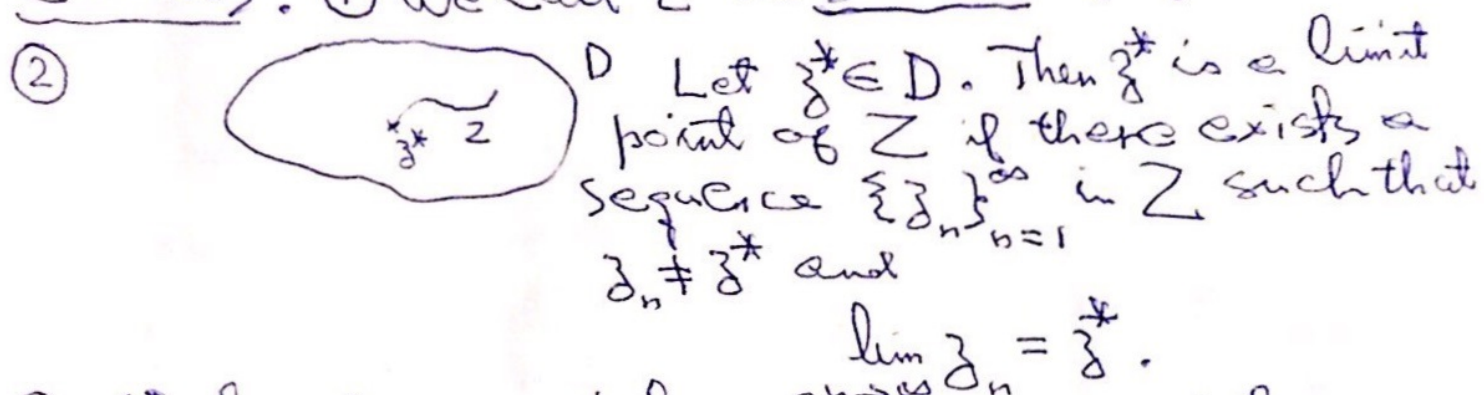 ① We call Z
② D Let z* ∈ D. Then z* is a limit
z* Z point of Z if there exists a
sequence {z_n}_{n=1}^∞ in Z such that
z_n ≠ z* and
lim z_n = z*.